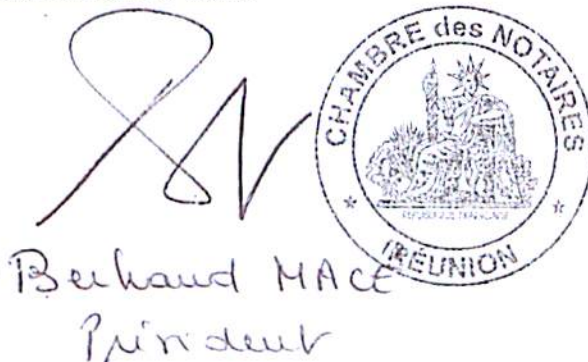 CHAMBRE des NOTAIRES
RÉPUBLIQUE FRANÇAISE
RÉUNION
Bertrand MACE
Président